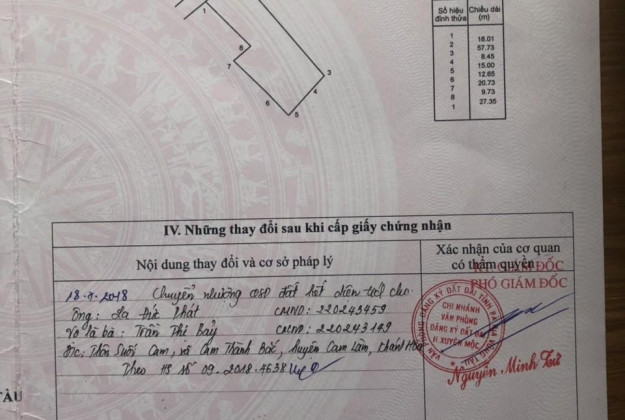 Số hiệu đỉnh thửa Chiều dài (m)
1
16.01
2
57.73
3
8.45
4
15.00
5
12.65
6
20.73
7
9.73
8
27.35
1
1
8
7
3
6
4
5
IV. Những thay đổi sau khi cấp giấy chứng nhận
Nội dung thay đổi và cơ sở pháp lý
Xác nhận của cơ quan
có thẩm quyền
GIÁM ĐỐC
PHÓ GIÁM ĐỐC
Chuyển nhượng QSD đất hết diện tích cho
Ông: Đức Phát CMND: 220243459
Vợ là bà: Trần Thị Bảy CMND: 220243149
Đ/c: Thôn Suối Cam, xã Cam Thành Bắc, huyện Cam Lâm, Khánh Hòa
Theo HS số 09.2018.4638
VĂN PHÒNG ĐĂNG KÝ ĐẤT ĐAI TỈNH BÀ RỊA VŨNG TÀU
CHI NHÁNH
VĂN PHÒNG
ĐĂNG KÝ ĐẤT ĐAI
H. XUYÊN MỘC
Nguyễn Minh Tứ
TÀU